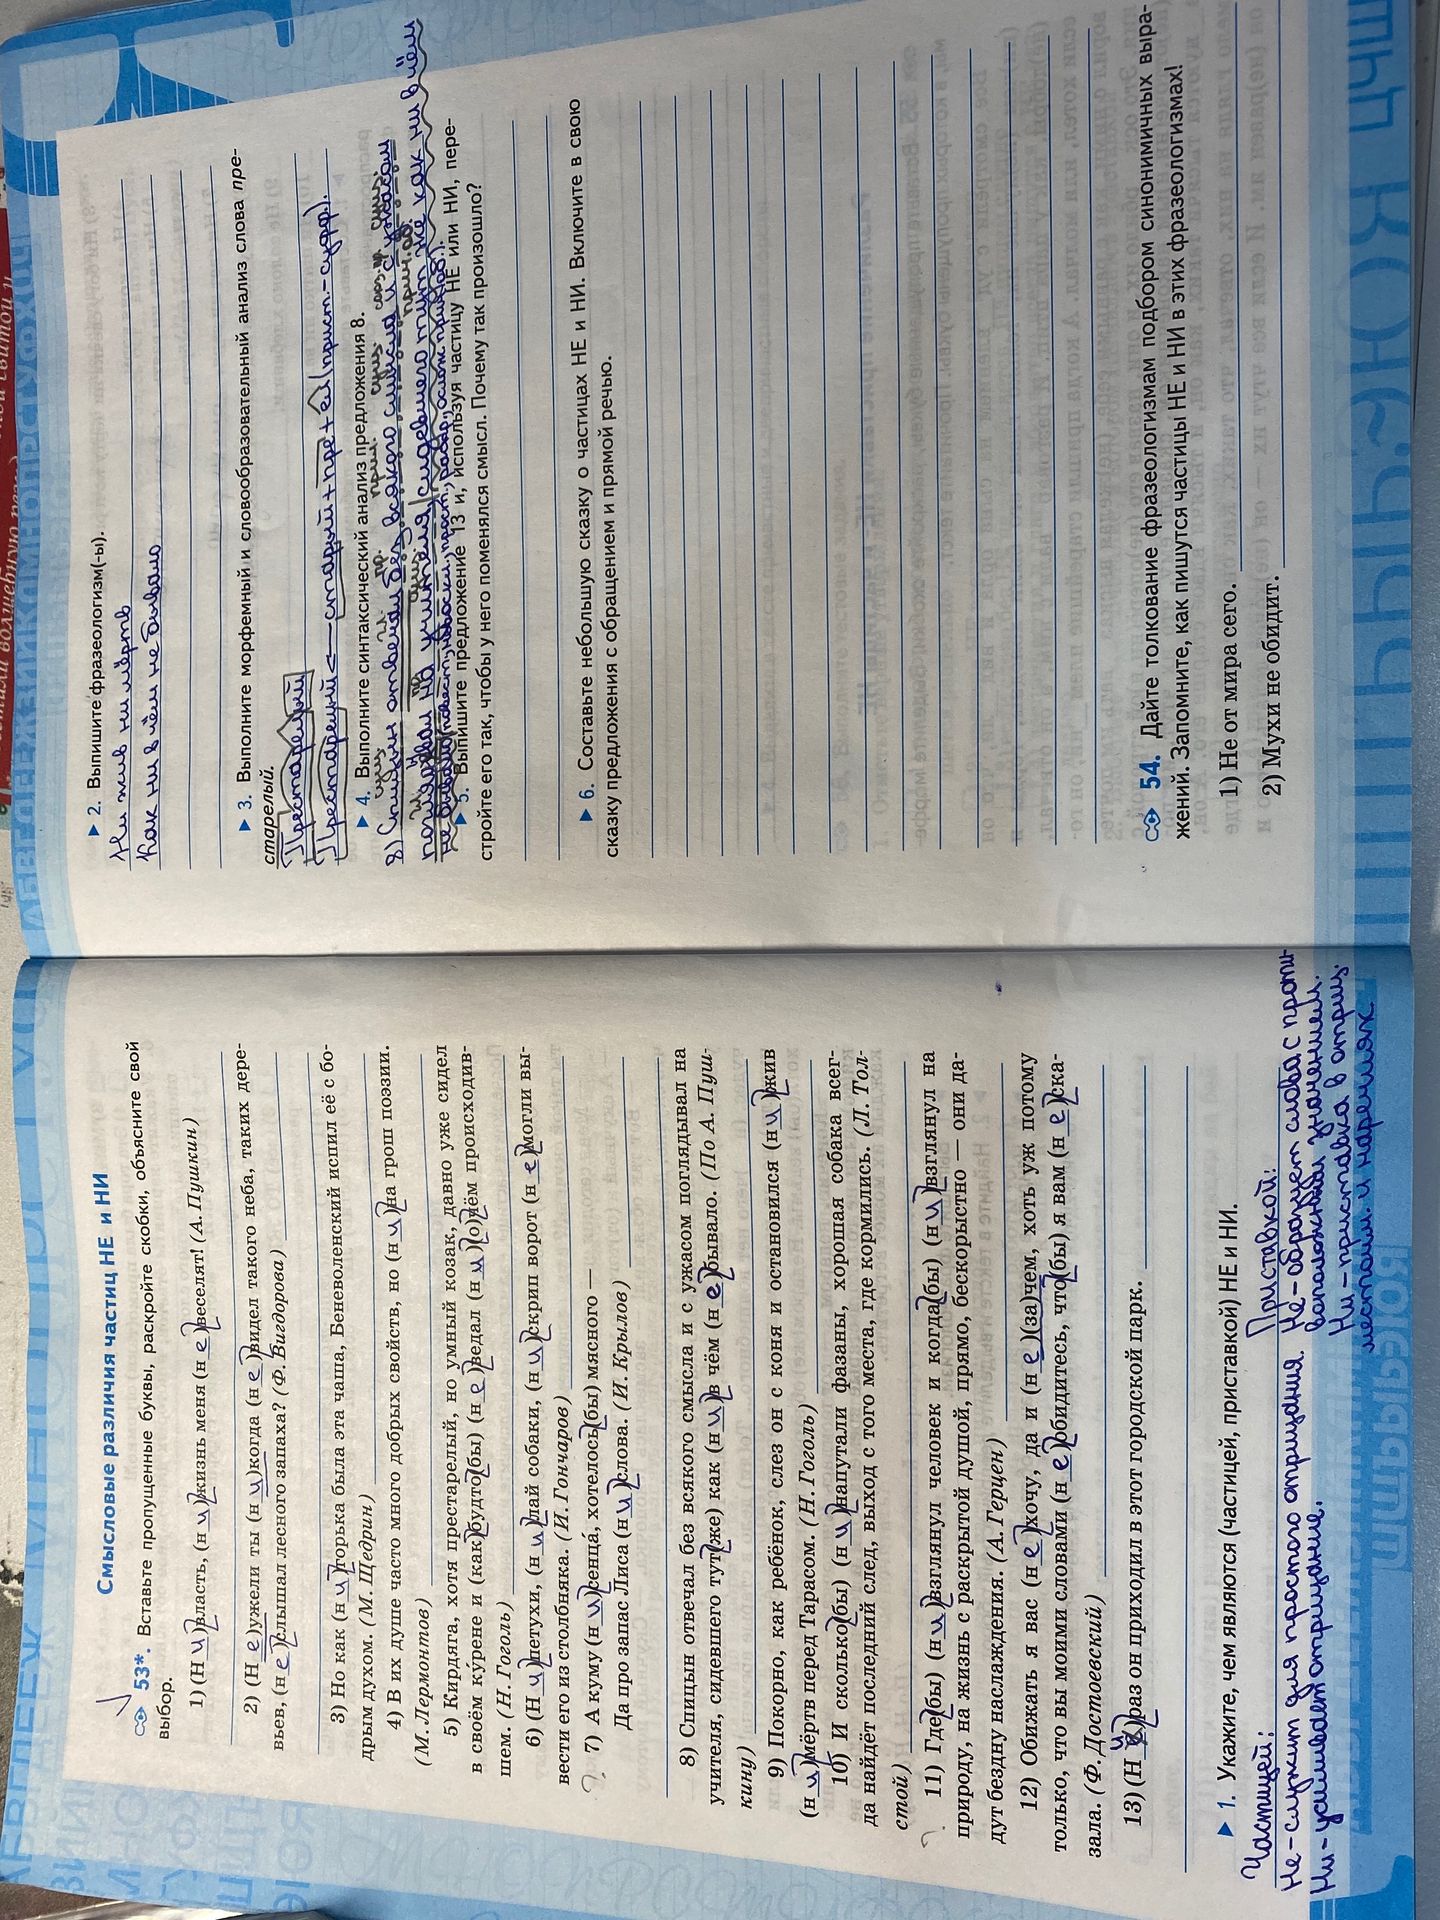 Смысловые различия частиц НЕ и НИ
53*. Вставьте пропущенные буквы, раскройте скобки, объясните свой
выбор.
1) (Ни)власть, (ни)жизнь меня (не)веселят! (А. Пушкин)
2) (Не)ужели ты (ни)когда (не)видел такого неба, таких дере-
вьев, (не)слышал лесного запаха? (Ф. Вигдорова)
3) Но как (ни)горька была эта чаша, Беневоленский испил её с бо-
дрым духом. (М. Щедрин)
4) В их душе часто много добрых свойств, но (ни)на грош поэзии.
(М. Лермонтов)
5) Кирдяга, хотя престарелый, но умный козак, давно уже сидел
в своём курене и (как)будто(бы) (не)ведал (ни)(о)чём происходив-
шем. (Н. Гоголь)
6) (Ни)петухи, (ни)лай собаки, (ни)скрип ворот (не)могли вы-
вести его из столбняка. (И. Гончаров)
7) А куму (ни)сенца́, хотелось(бы) мясного —
Да про запас Лиса (ни)слова. (И. Крылов)
8) Спицын отвечал без всякого смысла и с ужасом поглядывал на
учителя, сидевшего тут(же) как (ни)в чём (не)бывало. (По А. Пуш-
кину)
9) Покорно, как ребёнок, слез он с коня и остановился (ни)жив
(ни)мёртв перед Тарасом. (Н. Гоголь)
10) И сколько(бы) (ни)напутали фазаны, хорошая собака всег-
да найдёт последний след, выход с того места, где кормились. (Л. Тол-
стой)
11) Где(бы) (ни)взглянул человек и когда(бы) (ни)взглянул на
природу, на жизнь с раскрытой душой, прямо, бескорыстно — они да-
дут бездну наслаждения. (А. Герцен)
12) Обижать я вас (не)хочу, да и (не)(за)чем, хоть уж потому
только, что вы моими словами (не)обидитесь, что(бы) я вам (не)ска-
зала. (Ф. Достоевский)
13) (Ни)раз он приходил в этот городской парк.
1. Укажите, чем являются (частицей, приставкой) НЕ и НИ.
Частицей:
Не - служит для простого отрицания.
Ни - усиливает отрицание.
Приставкой:
Не - образует слова с проти-
воположным значением.
Ни - приставка в отриц.
местоим. и наречиях
2. Выпишите фразеологизм(-ы).
Ни жив ни мёртв
Как ни в чём не бывало
3. Выполните морфемный и словообразовательный анализ слова пре-
старелый.
Престарелый
Престарелый ← старый + пре + ел (прист.-суфф.).
4. Выполните синтаксический анализ предложения 8.
8) Спицын отвечал без всякого смысла и с ужасом
поглядывал на учителя, сидевшего тут же как ни в чём
не бывало
5. Выпишите предложение 13 и, используя частицу НЕ или НИ, пере-
стройте его так, чтобы у него поменялся смысл. Почему так произошло?
6. Составьте небольшую сказку о частицах НЕ и НИ. Включите в свою
сказку предложения с обращением и прямой речью.
54. Дайте толкование фразеологизмам подбором синонимичных выра-
жений. Запомните, как пишутся частицы НЕ и НИ в этих фразеологизмах!
1) Не от мира сего.
2) Мухи не обидит.